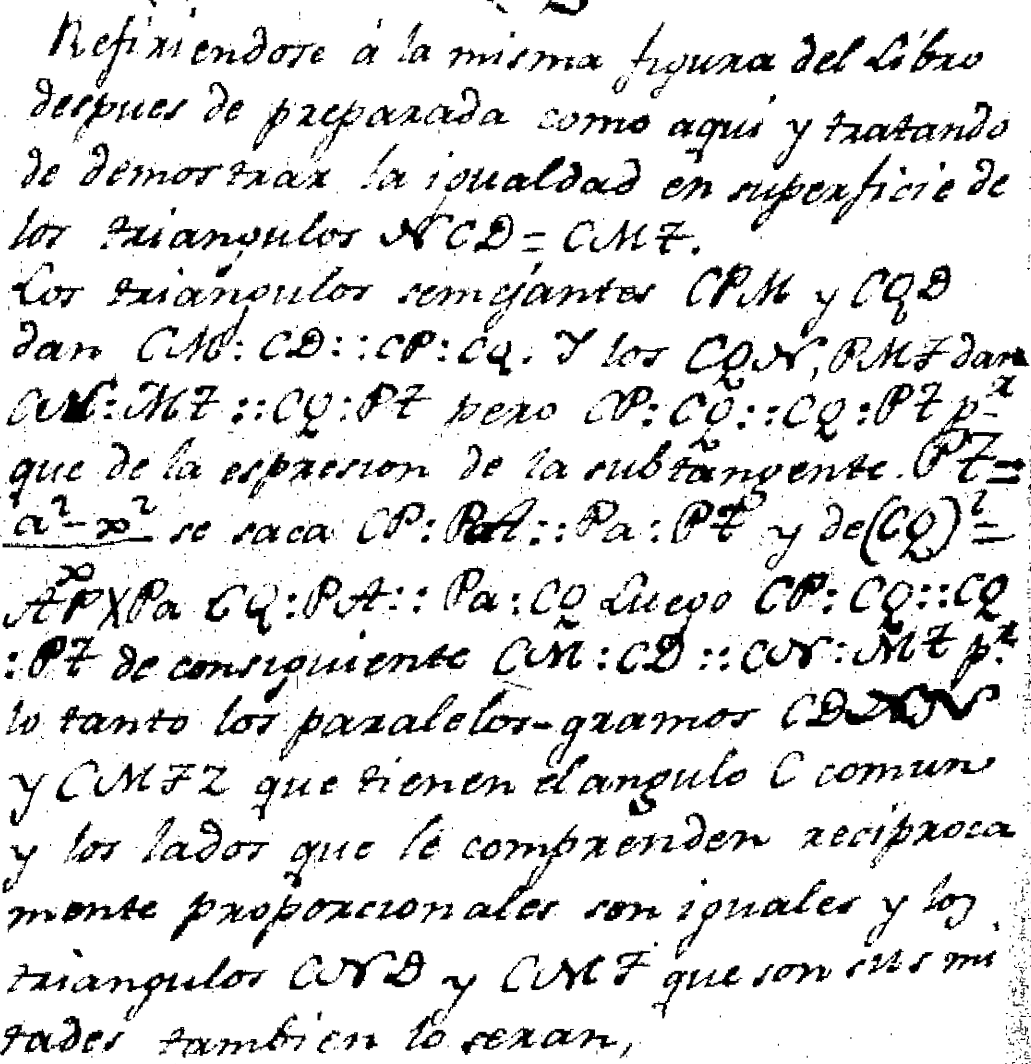 Refiriendose á la misma figura del Libro
despues de preparada como aqui y tratando
de demostrar la igualdad en superficie de
los triangulos NCD = CMT.
Los triángulos semejantes CPM y CQD
dan CM:CD::CP:CQ. Y los CQN, PMT dan
CN:MT::CQ:PT pero CP:CQ::CQ:PT p.r
que de la espresion de la subtangente. PT =
a² - x² se saca CP:PA::Pa:PT y de (CQ)² =
x
AP X Pa CQ:PA::Pa:CQ Luego CP:CQ::CQ
:PT de consiguiente CM:CD::CN:MT p.r
lo tanto los paralelos-gramos CDXN
y CMTZ que tienen el angulo C comun
y los lados que le comprenden reciproca
mente proporcionales son iguales y los
triangulos CND y CMT que son sus mi
tades tambien lo seran,